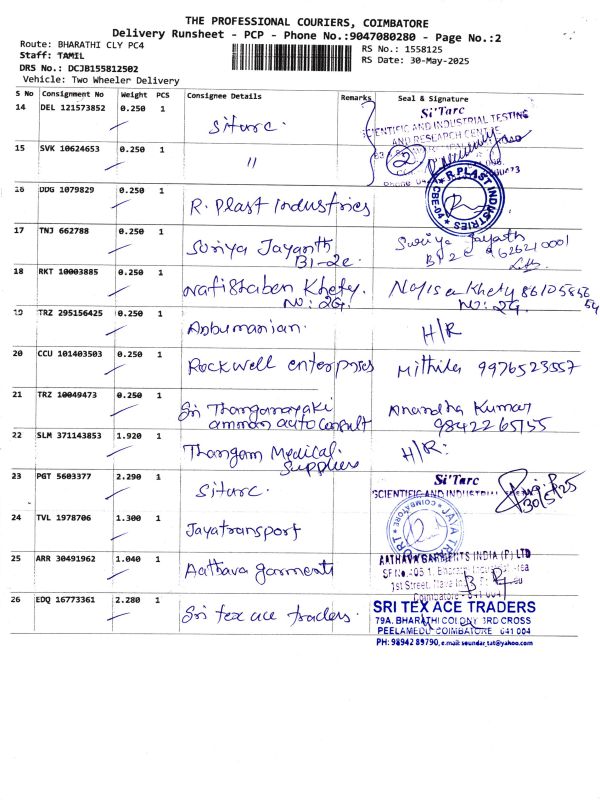 THE PROFESSIONAL COURIERS, COIMBATORE
Delivery Runsheet - PCP - Phone No.:9047080280 - Page No.:2
Route: BHARATHI CLY PC4
Staff: TAMIL
DRS No.: DCJB155812502
Vehicle: Two Wheeler Delivery
RS No.: 1558125
RS Date: 30-May-2025
S No Consignment No Weight PCS Consignee Details Remarks Seal & Signature
14 DEL 121573852 0.250 1 Siturc. Si'Tarc
SCIENTIFIC AND INDUSTRIAL TESTING
AND RESEARCH CENTRE
15 SVK 10624653 0.250 1 " 2
16 DDG 1079829 0.250 1 R. Plast Industries R.PLAST INDUSTRIES CBE-04
17 TNJ 662788 0.250 1 Suriya Jayanth
B1-2c.
Suriya Jayath
18 RKT 10003885 0.250 1 Nafishaben Khety.
NO: 2G.
Nafisa Khety
NO: 2G.
19 TRZ 295156425 0.250 1 H/R
20 CCU 101403503 0.250 1 Rockwell enterprises Mithila 9976523557
21 TRZ 10049473 0.250 1 Sri Thanganayaki
amman auto consult
Anandha Kumar
9842265155
22 SLM 371143853 1.920 1 Thangam Medical
Suppliers
H/R:
23 PGT 5603377 2.290 1 Siturc. Si'Tarc
SCIENTIFIC AND INDUSTRIAL
30/5/25
24 TVL 1978706 1.300 1 Jayatransport COIMBATORE
25 ARR 30491962 1.040 1 Aathava garments AATHAVA GARMENTS INDIA (P) LTD
1st Street,
Coimbatore - 641 004
26 EDQ 16773361 2.280 1 Sri tex ace traders. SRI TEX ACE TRADERS
79A, BHARATHI COLONY 3RD CROSS
PEELAMEDU COIMBATORE 641 004
PH: 98942 89790, e.mail: soundar_tat@yahoo.com